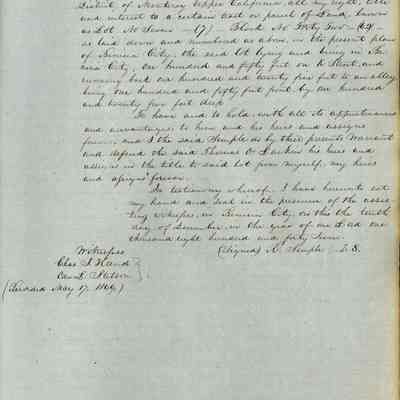 District of Monterey Upper California, all my right, title
and interest to a certain lot or parcel of Land, known
as Lot No Seven —(7)— Block No Forty Two —(42)
as laid down and numbered as above, on the present plan
of Benicia City, the said lot lying and being in
cia City, one hundred and fifty feet on K Street, and
running back one hundred and twenty five feet to an alley
being one hundred and fifty feet front by one hundred
and twenty five feet deep
To have and to hold, with all its appurtenances
and advantages to him and his heirs and assigns
forever, and I the said Semple do by these presents Warrant
and defend the said Thomas O. Larkin his heirs and
assigns in the title to said lot from myself, my heirs
and assigns forever.
In testimony whereof, I have hereunto set
my hand and Seal in the presence of the
ting witnesses, in Benicia City, on this the tenth
day of December, in the year of our Lord one
thousand eight hundred and forty Seven
Witnesses (Signed) R. Semple L.S.
Chas
Stetson
(Recorded May 17,